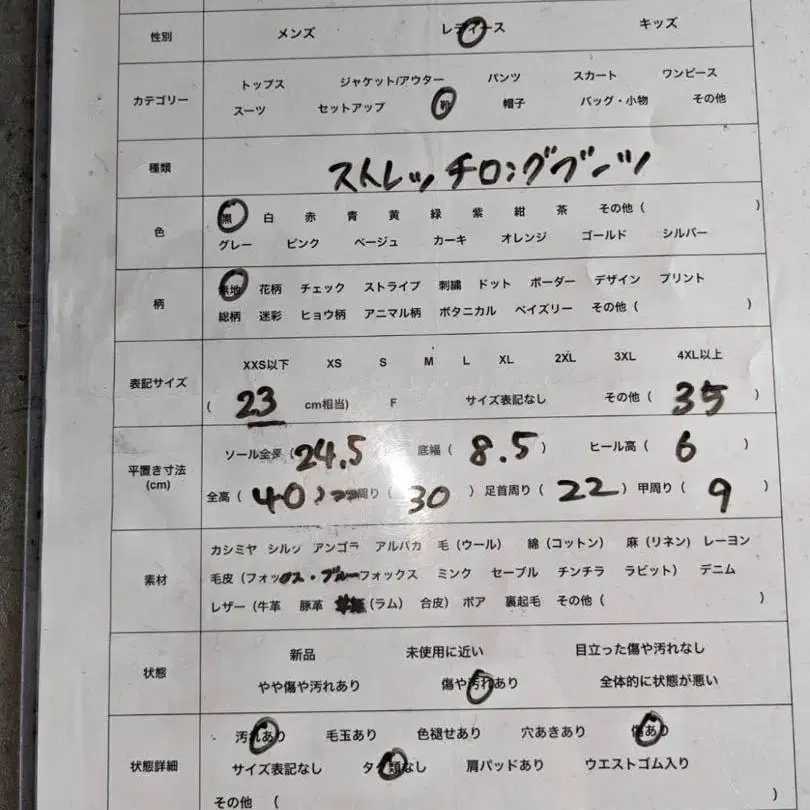 性別 メンズ レディース キッズ
カテゴリー トップス ジャケット/アウター パンツ スカート ワンピース
スーツ セットアップ 靴 帽子 バッグ・小物 その他
種類 ストレッチロングブーツ
色 黒 白 赤 青 黄 緑 紫 紺 茶 その他 ( )
グレー ピンク ベージュ カーキ オレンジ ゴールド シルバー
柄 無地 花柄 チェック ストライプ 刺繍 ドット ボーダー デザイン プリント
総柄 迷彩 ヒョウ柄 アニマル柄 ボタニカル ペイズリー その他 ( )
表記サイズ XXS以下 XS S M L XL 2XL 3XL 4XL以上
( 23 cm相当) F サイズ表記なし その他 ( 35 )
平置き寸法 (cm) ソール全長 ( 24.5 底幅 ( 8.5 ) ヒール高 ( 6 )
全高 ( 40 ) 周り ( 30 ) 足首周り ( 22 ) 甲周り ( 9 )
素材 カシミヤ シルク アンゴラ アルパカ 毛 (ウール) 綿 (コットン) 麻 (リネン) レーヨン
毛皮 (フォックス・ブルーフォックス ミンク セーブル チンチラ ラビット) デニム
レザー (牛革 豚革 (ラム) 合皮) ボア 裏起毛 その他 ( )
状態 新品 未使用に近い 目立った傷や汚れなし
やや傷や汚れあり 傷や汚れあり 全体的に状態が悪い
状態詳細 汚れあり 毛玉あり 色褪せあり 穴あきあり 傷あり
サイズ表記なし タグ類なし 肩パッドあり ウエストゴム入り
その他 ( )